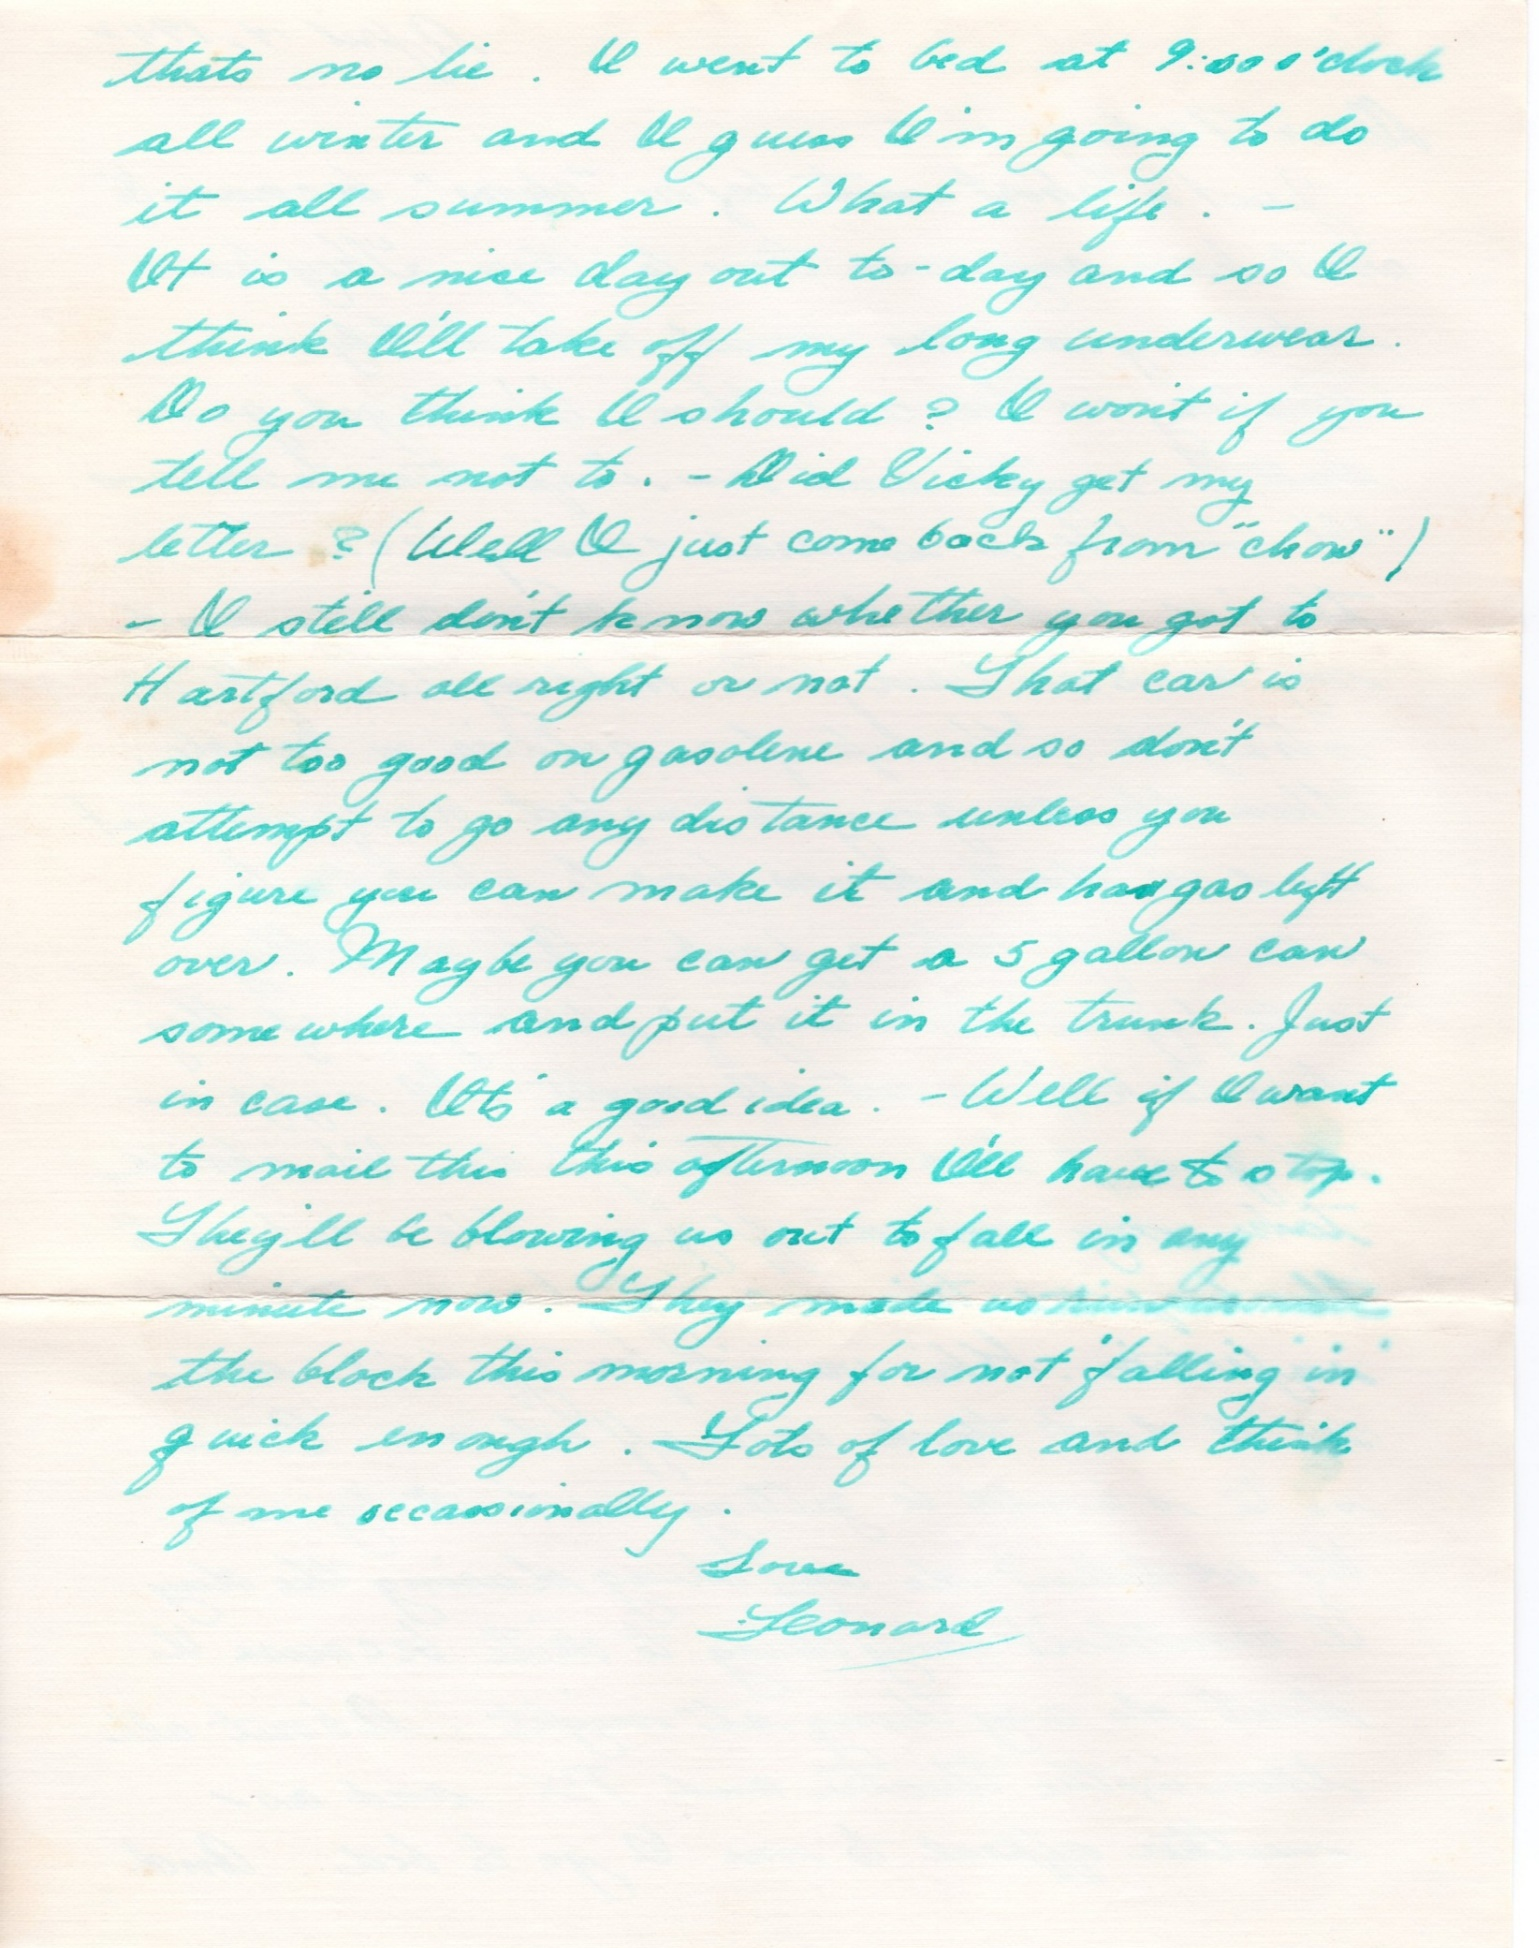 thats no lie. I went to bed at 9:00 o'clock
all winter and I guess I'm going to do
it all summer. What a life. -
It is a nice day out to-day and so I
think I'll take off my long underwear.
Do you think I should? I won't if you
tell me not to. - Did Vicky get my
letter? (Well I just come back from "chow")
- I still don't know whether you got to
Hartford all right or not. That car is
not too good on gasolene and so don't
attempt to go any distance unless you
figure you can make it and has gas left
over. Maybe you can get a 5 gallon can
somewhere and put it in the trunk. Just
in case. It's a good idea. - Well if I want
to mail this this afternoon I'll have to stop.
They'll be blowing us out to fall in any
minute now. They made us run around
the block this morning for not "falling in"
quick enough. Lots of love and think
of me occassionally.
Love
Leonard